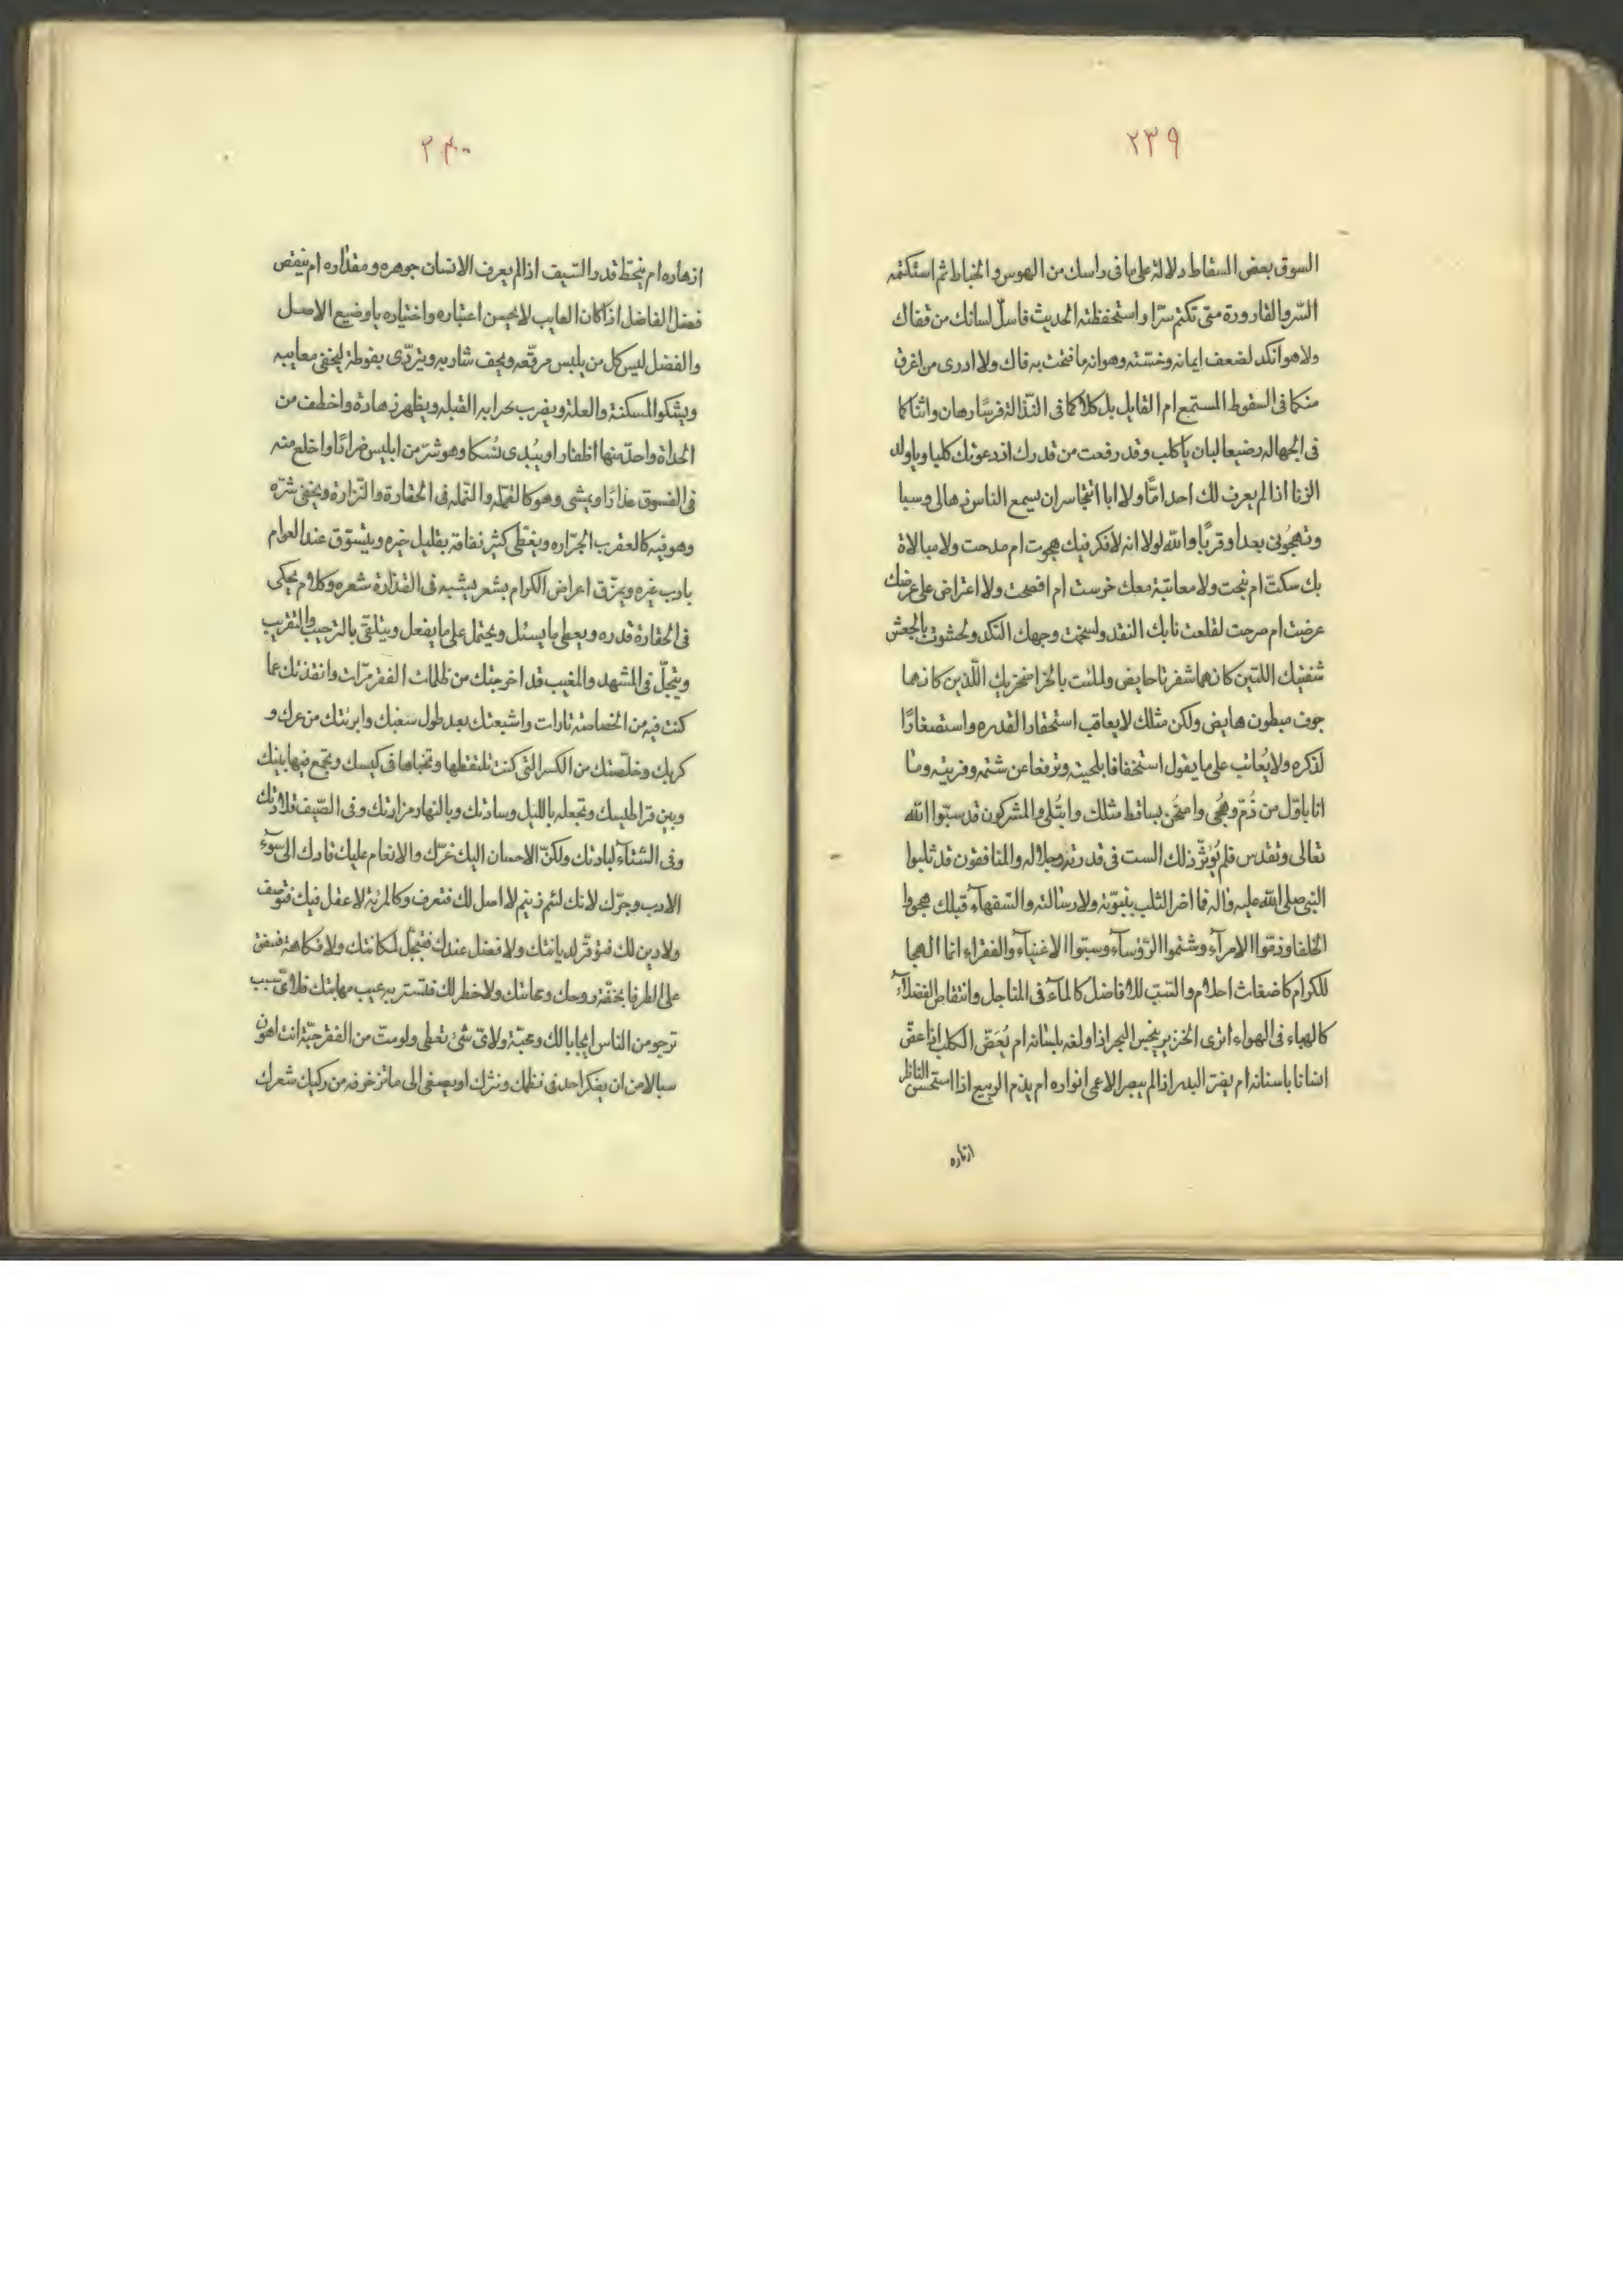 ٢٣٩
السوق بعض السقاط دلالة على ما فى راسك من الهوس والخباط ثم استكتمته
السّر والقارورة متى تكتم سرّا واستحفظته الحديث فاسلّ لسانك من قفاك
ولا هو انكد لضعف ايمانه وخسّته وهوانه ما فتحت به فاك ولا ادرى من اغرق
منكما فى السقوط المستمع ام القايل بل كلاكما فى النّذالة فرسًا رهان وانتما
فى الجهاله رضيعا لبان يا كلب وقد رفعت من قدرك اذ دعوتك كلبا ويا ولد
الزنا اذا لم يعرف لك احد امّا ولا ابا اتتجاسر ان يسمع الناس هالى وسبا
وتهجونى بعدا وقربًا والله لولا انه لا فكر فيك هجوت ام مدحت ولا مبالاة
بك سكتّ ام نبحت ولا معاتبة معك خرست ام افصحت ولا اعتراض على عرضك
عرضت ام صرحت لقلعت نابك النقد ولسخمت وجهك النكد ولحشوت بالجعس
شفتيك اللتين كانهما شفرتا حايض ولملئت بالخرا منخريك اللّذين كانهما
جوف مبطون هايض ولكن مثلك لا يعاقب استحقارا لقدره واستصغارًا
لذكره ولا يُعاتب على ما يقول استخفافا بلحيته وترفعا عن شتمه وفريته وما
انا باوّل من ذُمّ وهُجى وامتُحن بساقط مثلك وابتُلى والمشركون قد سبّوا الله
تعالى وتقدس فلم يُؤثّر ذلك السبّ فى قدرته وجلاله والمنافقون قد ثلبوا
النبى صلى الله عليه واله فما اضرّ الثلب بنبوّته ولا رسالته والسّفهآء قبلك هجوا
الخلفا وذمّوا الامرآء وشتموا الرّؤسآء وسبّوا الاغنيآء والفقراء انما الهجا
للكرام كاضغاث احلام والسّبّ للافاضل كالمآء فى المناجل وانتقاص الفضلآء
كالهباء فى الهواء اترى الخنزير ينجس البحر اذا ولغه بلسانه ام يُعَضّ الكلب اذا عضّ
انسانا باسنانه ام يضرّ البدر اذا لم يبصر الاعمى انواره ام يذم الربيع اذا استحسن الناظر
ازهاره
٢٤٠
ازهاره ام ينحطّ قدر السّيف اذا لم يعرف الانسان جوهره ومقداره ام ينقص
فضل الفاضل اذا كان العايب لا يحسن اعتباره واختياره يا وضيع الاصل
والفضل ليس كل من يلبس مرقّعه ويحف شاربه ويتردّى بفوطة ليخفى معايبه
ويشكوا المسكنة والعلة ويضرب بحرابه القبله ويظهر زهادة واخطف من
الحداة واحدّ منها اظفارا ويُبدى نُسكا وهو شرّ من ابليس ضرارًا واخلع منه
فى الفسوق عذارًا ويمشى وهو كالقمّله والنمّله فى الحقارة والنّزارة ويخفى شرّه
وهو فيه كالعقرب الجرّاره ويغطّى كثير نفاقه بقليل خيره ويتسوّق عند العوام
بادب غيره ويمزّق اعراض الكرام بشعر يشبه فى القذارة شعره وكلام يحكى
فى الحقارة قدره ويعطى ما يسئل ويحتمل على ما يفعل ويتلقى بالترحيب والتقريب
ويتجلّ فى المشهد والمغيب قد اخرجتك من ظلمات الفقر مرّات وانقذتك عما
كنت فيه من الخصاصة تارات واشبعتك بعد طول سغبك وابرئتك من عرك و
كربك وخلّصتك من الكسر التى كنت تلتقطها وتخباها فى كيسك وتجمع فيها بينك
وبين قراطيسك وتجعله بالليل وسادتك وبالنهار مزارتك وفى الصّيف قلادتك
وفى الشتآء لبادتك ولكنّ الاحسان اليك غرّك والانعام عليك قادك الى سوء
الادب وجرّك لانك لئيم ذنيم لا اصل لك فتعرف وكالمرئة لا عقل فيك فتوصف
ولا دين لك فتوقّر لديانتك ولا فضل عندك فتبجّل لمكانتك ولا فكاهة فتنفق
على الظرفا بخفّة روحك ومجانتك ولا خطر لك فتستر به عيب مهانتك فلاىّ سبب
ترجو من الناس ايجابا لك ومحبّة ولاىّ شئ تعطى ولو متّ من الفقر حبّة انت اهون
سبالا من ان يفكر احد فى نظمك ونثرك او يصغى الى ما تزخرفه من ركيك شعرك